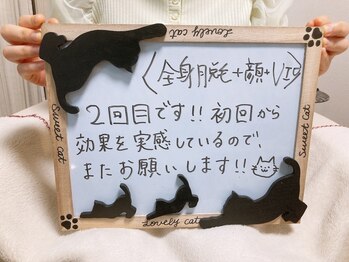 Lovely cat
〈全身脱毛+顔+VIO〉
2回目です!!初回から
効果を実感しているので、
またお願いします!!
Sweet cat
Sweet cat
Lovely cat